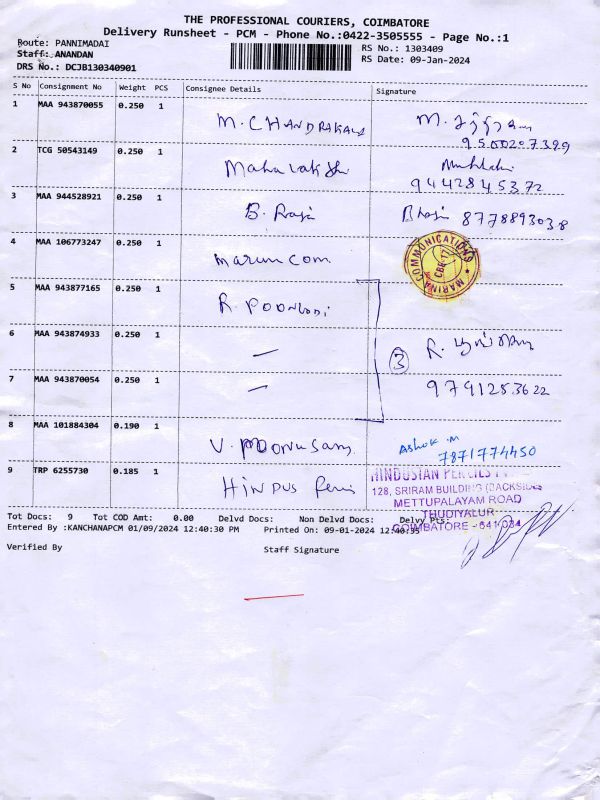 THE PROFESSIONAL COURIERS, COIMBATORE
Delivery Runsheet - PCM - Phone No.:0422-3505555 - Page No.:1
Route: PANNIMADAI
Staff: ANANDAN
DRS No.: DCJB130340901
RS No.: 1303409
RS Date: 09-Jan-2024
S No Consignment No Weight PCS Consignee Details Signature
1 MAA 943870055 0.250 1 M. CHANDRAKALA M.
9500207399
2 TCG 50543149 0.250 1 Mahalakshi
9442845372
3 MAA 944528921 0.250 1 B. Raja 8778893038
4 MAA 106773247 0.250 1 Marun com MARINA COMMUNICATIONS CBE-17
5 MAA 943877165 0.250 1 R. POONGODI
6 MAA 943874933 0.250 1 — 3 R.
7 MAA 943870054 0.250 1 — 9791253622
8 MAA 101884304 0.190 1 V. Moonusamy Ashok.M
7871774450
9 TRP 6255730 0.185 1 HINDUS
128, SRIRAM BUILDING (BACKSIDE)
METTUPALAYAM ROAD
THUDIYALUR
COIMBATORE - 641 034
Tot Docs: 9 Tot COD Amt: 0.00 Delvd Docs: Non Delvd Docs: Delvy Pts:
Entered By :KANCHANAPCM 01/09/2024 12:40:30 PM Printed On: 09-01-2024 12:40:35
Verified By Staff Signature